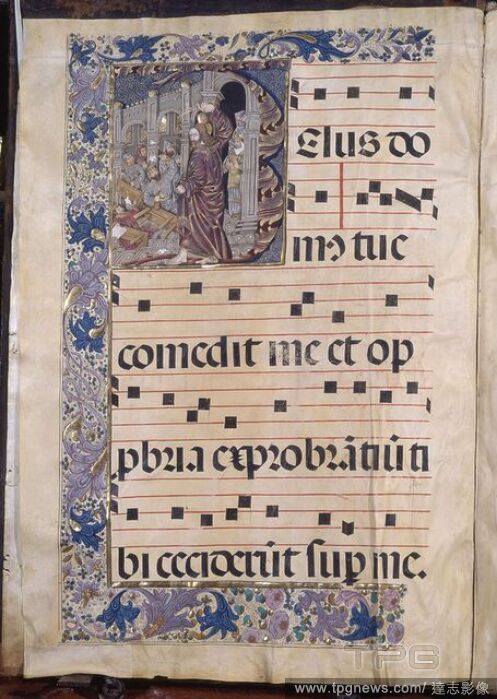 Elus do
mꝰ tue
comedit me et op
pbria exprobrātiū ti
bi ceciderūt sup me.
TPG
www.tpgnews.com/ 達志影像